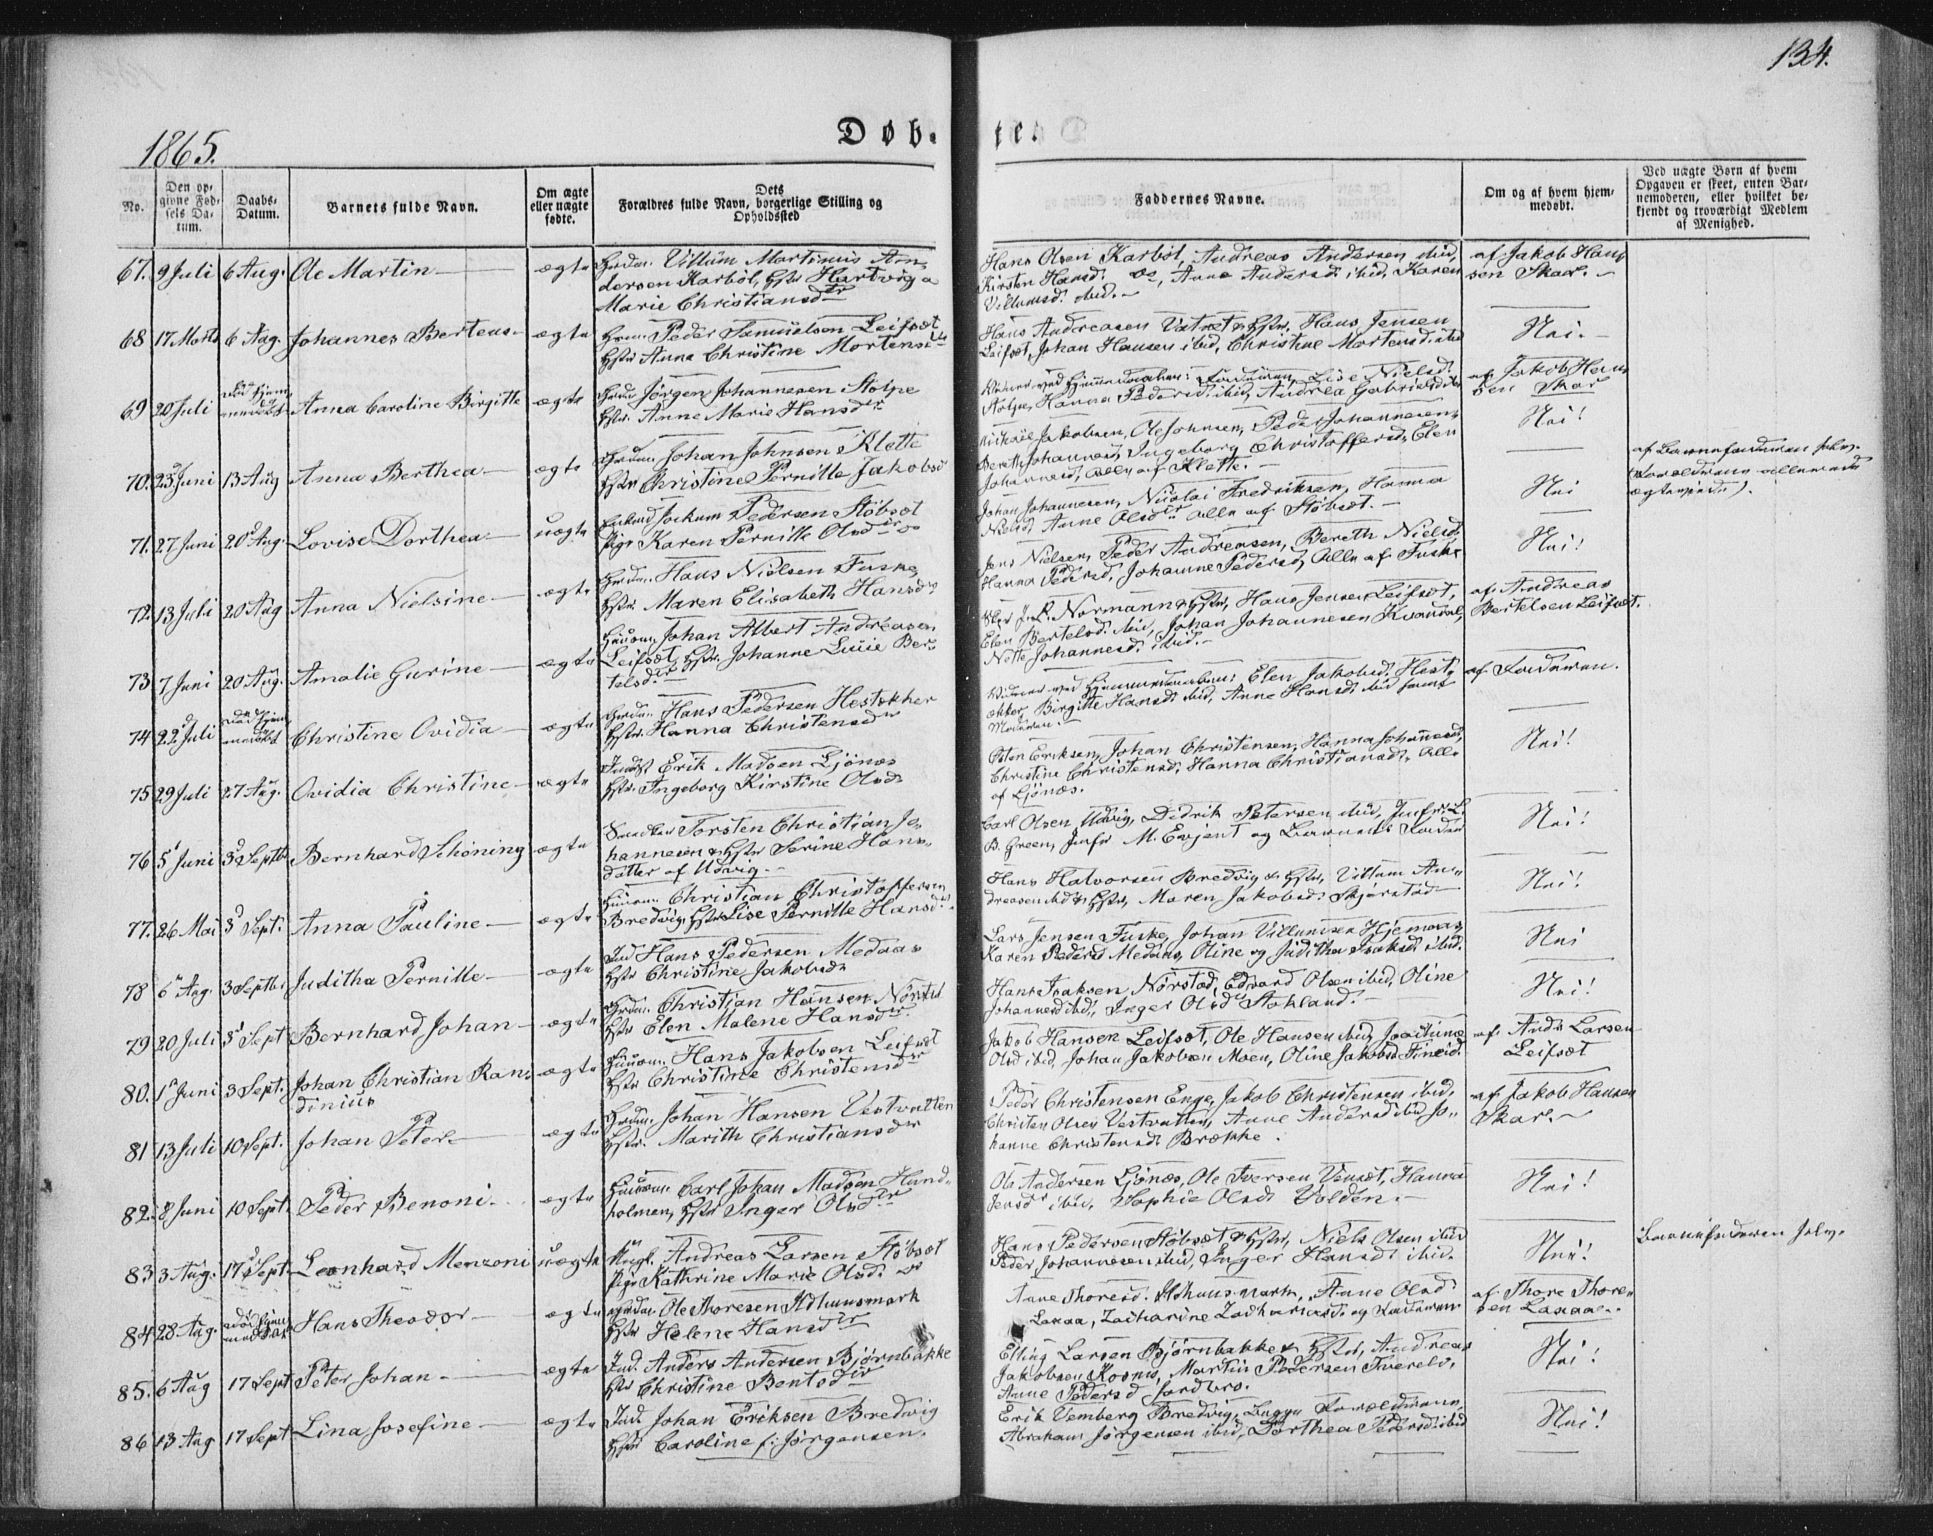 134.
1865.
Døb-
te.
No.
Den op-
givne Fød-
sels Da-
tum.
Daabs-
Datum.
Barnets fulde Navn.
Om ægte
eller uægte
fødte.
Dets
Forældres fulde Navn, borgerlige Stilling og
Opholdssted
Faddernes Navne.
Om og af hvem hjem-
medøbt.
Ved uægte Børn af hvem
Opgaven er skeet, enten Bar-
nemoderen, eller hvilket be-
kjendt og troværdigt Medlem
af Menighed.
67. 9 Juli 6 Aug. Ole Martin ægte Villum Martinus An-
dersen Karbøl, Hstr Hartviga
Marie Christiansdr
Hans Olsen Karbøl, Andreas Andersen ibid,
Kirsten Hansd. Anne Andersd. ibid, Karen
Villumsd. ibid.
af Jakob Han-
sen Skar.
68 17 Marts 6 Aug. Johannes Berteus ægte Peder Samuelsen Leifset
Hstr Anna Christine Mortensdr
Hans Andreasen Vatnet & Hstr, Hans Jensen
Leifset, Johan Hansen ibid, Christine Mortensd. ibid
Nei.
69 20 Juli Anna Caroline Birgitte ægte Jørgen Johannesen Stolpe
Hstr. Anne Marie Hansdr
Lise Nielsd.
Stolpe, Hanna Pedersd. ibid, Andrea Gabrielsd. ibid
af Jakob Han-
sen Skar
70. 23 Juni 13 Aug Anna Berthea ægte Johan Johnsen Klette
Hstr Christine Pernille Jakobsd
Michael Jakobsen, Ole Johnsen, Peder Johannesen,
Bereth Johannesd, Ingeborg Christoffersd, Elen
Johannesd, alle af Klette.
Nei!
71. 27 Juni 20 Aug. Lovise Dorthea uægte Jochum Pedersen Støbset
Pige Karen Pernille Olsdr
Johan Johannesen, Nicolai Fredriksen, Hanna
Nielsd, Anne Olsdr alle af Støbset.
Nei
af Barnefaderen selv.
(Forældrene allerede
ægteviede).
72. 13 Juli 20 Aug Anna Nielsine ægte Hans Nielsen Fuske
Hstr. Maren Elisabeth Hansdr
Jens Nielsen, Peder Andreasen, Bereth Nielsd,
Hanna Pedersd, Johanne Pedersd, alle af Fuske
Nei!
73 7 Juni 20 Aug. Amalie Gurine ægte Johan Albert Andreasen
Leifset, Hstr. Johanne Lucie Ber-
telsdr
Normann & Hstr, Hans Jensen Leifset,
Elen Bertelsd. ibid, Johan Johannesen Kvandal,
Nette Johannesd. ibid.
af Andreas
Bertelsen Leifset.
74 22 Juli Christine Ovidia ægte Hans Pedersen Hestekker
Hstr. Hanna Christensdr
Vidner ved Hjemmedaaben: Elen Jakobsd. Hest-
ækker, Birgitte Hansd. ibid, Anne Hansd. ibid samt
Moderen.
af Faderen.
75 29 Juli 27 Aug. Ovidia Christine ægte Indst Erik Madsen Ljønæs
Hstr. Ingeborg Kirstine Olsdr
Osten Eriksen, Johan Christensen, Hanna Johannesd,
Christine Christensd, Hanna Christiansd. Alle
af Ljönæs.
Nei!
76 5 Juni 3 Septbr Bernhard Schöning ægte Torsten Christian Jo-
hannesen & Hstr Serine Hans-
datter af Utvig.
Carl Olsen Utvig, Didrik Petersen ibid, Jomfr. L.
B. Green, Jomfr M. Evjent og Barnets Fader
Nei!
77. 26 Mai 3 Sept. Anna Pauline ægte Christian Christoffersen
Bredvig, Hstr Lise Pernille Hansdr.
Hans Halvorsen Bredvig & Hstr, Villum An-
dreasen ibid & Hstr, Maren Jakobsd. Skjærstad
Nei!
78 6 Aug. 3 Septbr. Juditha Pernille ægte Ind Hans Pedersen Medaas
Hstr Christine Jakobsdr
Lars Jensen Fuske, Johan Villumsen Hjemaas,
Karen Pedersd Medaas, Oline og Juditha Isaksd. ibid.
Nei
79 20 Juli 3 Sept Bernhard Johan ægte Christian Hansen Nørstad
Hstr Elen Malene Hansdr
Hans Isaksen Nørstad, Edvard Olsen ibid, Oline
Johannesd ibid, Inger Olsdr Stokland.
Nei!
80. 1 Juni 3 Sept. Johan Christian Ran-
dinius ægte Hans Jakobsen Leifset
Hstr Christine Christensdr
Jakob Hansen Leifset, Ole Hansen ibid,
Olsd ibid, Johan Jakobsen Moen, Oline Jakobsd Fineid.
af Andr Larsen
Leifset
81 13 Juli 10 Sept. Johan Peter ægte Johan Hansen Vestvatten
Hstr. Marith Christiansdr
Peder Christensen Enge, Jakob Christensen ibid,
Christen Olsen Vestvatten, Anne Andersd ibid Jo-
hanne Christensd. Brække.
af Jakob Hansen
Skar.
82. 8 Juni 10 Sept. Peder Benoni. ægte Carl Johan Madsen Hund-
holmen, Hstr Inger Olsdr
Ole Andersen Ljönæs, Ole Iversen Venset, Hanna
Jensdr ibid, Sophie Olsd. Volden.
Nei!
83 3 Aug. 17 Sept. Leonhard Menzoni uægte Ungk. Andreas Larsen Støbset
Pige Kathrine Marie Olsd.
Hans Pedersen Støbset & Hstr, Niels Olsen ibid
Peder Johannesen ibid, Inger Hansd. ibid.
Nei!
Barnefaderen selv.
84 28 Aug. Hans Theodor ægte Ole Thoresen
Hstr Helene Hansdr
Anne Thoresd. Anne Olsd
Laxaa, Zacharine Zachariasd. og Faderen
af Thore Thore-
sen Laxaa.
85. 6 Aug 17 Sept Peter Johan ægte Ind. Anders Andersen Bjørnbakke
Hstr Christine Bentsdr
Elling Larsen Bjørnbakke & Hstr, Andreas
Jakobsen Kosmo, Martin Pedersen Tverelv,
Anne Pedersd Jordbro.
Nei!
86 13 Aug 17 Sept Lina Josefine ægte Ind. Johan Eriksen Bredvig
Hstr Caroline f. Jørgensen.
Erik Vemberg Bredvig, begge Forældrene,
Abraham Jørgensen ibid, Dorthea Pedersd. ibid
Nei!